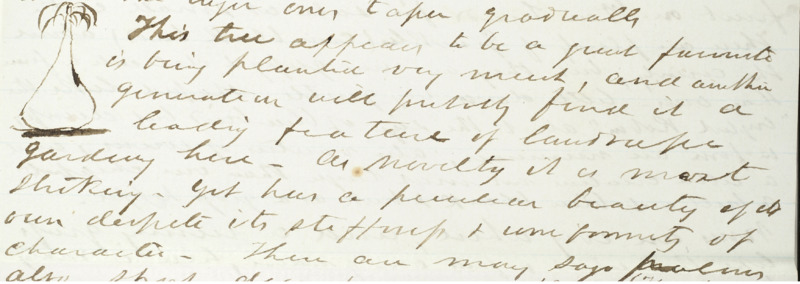 the larger ones taper gradually
This tree appears to be a great favourite
is being planted very much, and another
generation will probably find it a
leading feature of landscape
gardeng here - As novelty it is most
striking - yet has a peculiar beauty of its
own despite its stiffness & uniformity of
character - There are many sago palms
also